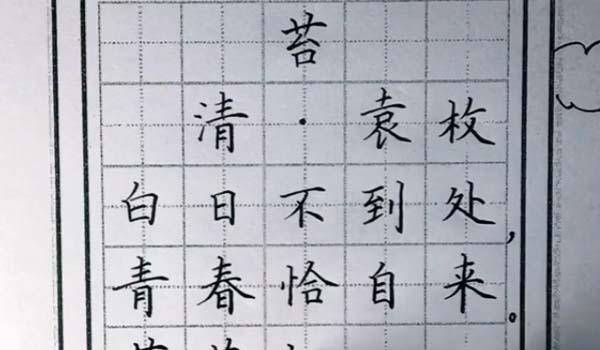 苔
清·袁枚
白日不到处，
青春恰自来。